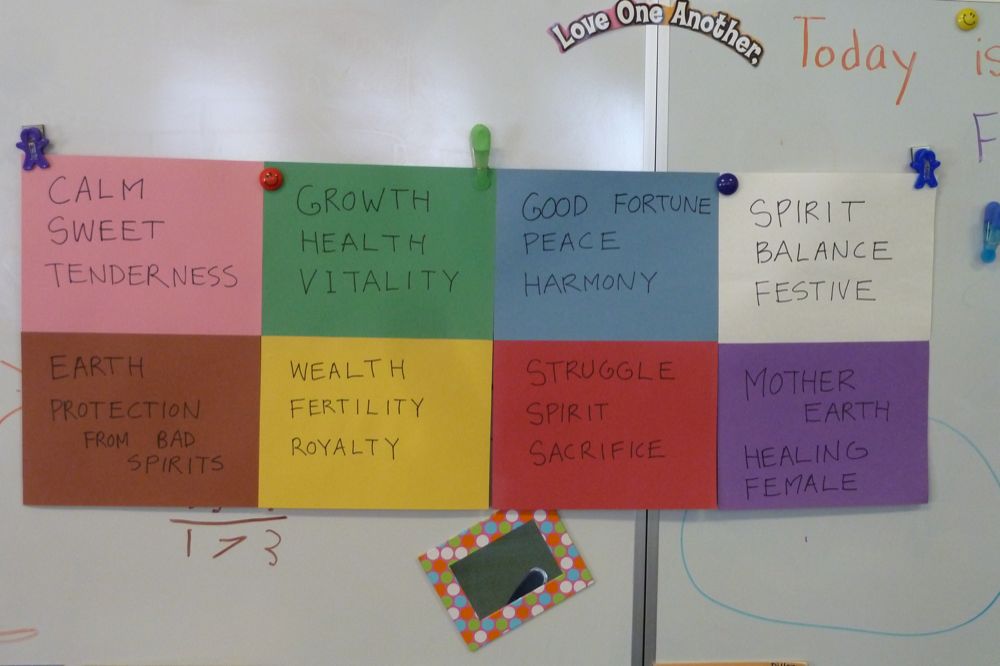 Love One Another.
Today is
F
CALM
SWEET
TENDERNESS
GROWTH
HEALTH
VITALITY
GOOD FORTUNE
PEACE
HARMONY
SPIRIT
BALANCE
FESTIVE
EARTH
PROTECTION
FROM BAD
SPIRITS
WEALTH
FERTILITY
ROYALTY
STRUGGLE
SPIRIT
SACRIFICE
MOTHER
EARTH
HEALING
FEMALE
1 > 3